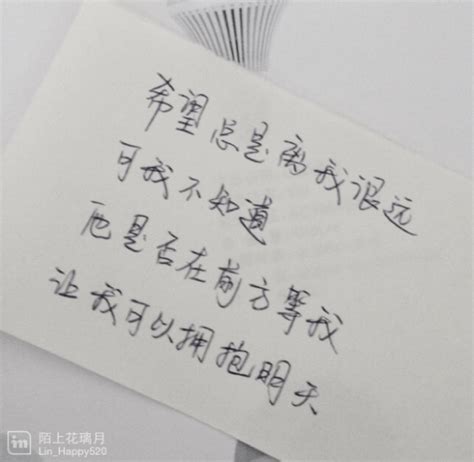 希望总是离我很远
可我不知道
他是否在前方等我
让我可以拥抱明天
in 陌上花璃月
Lin_Happy520